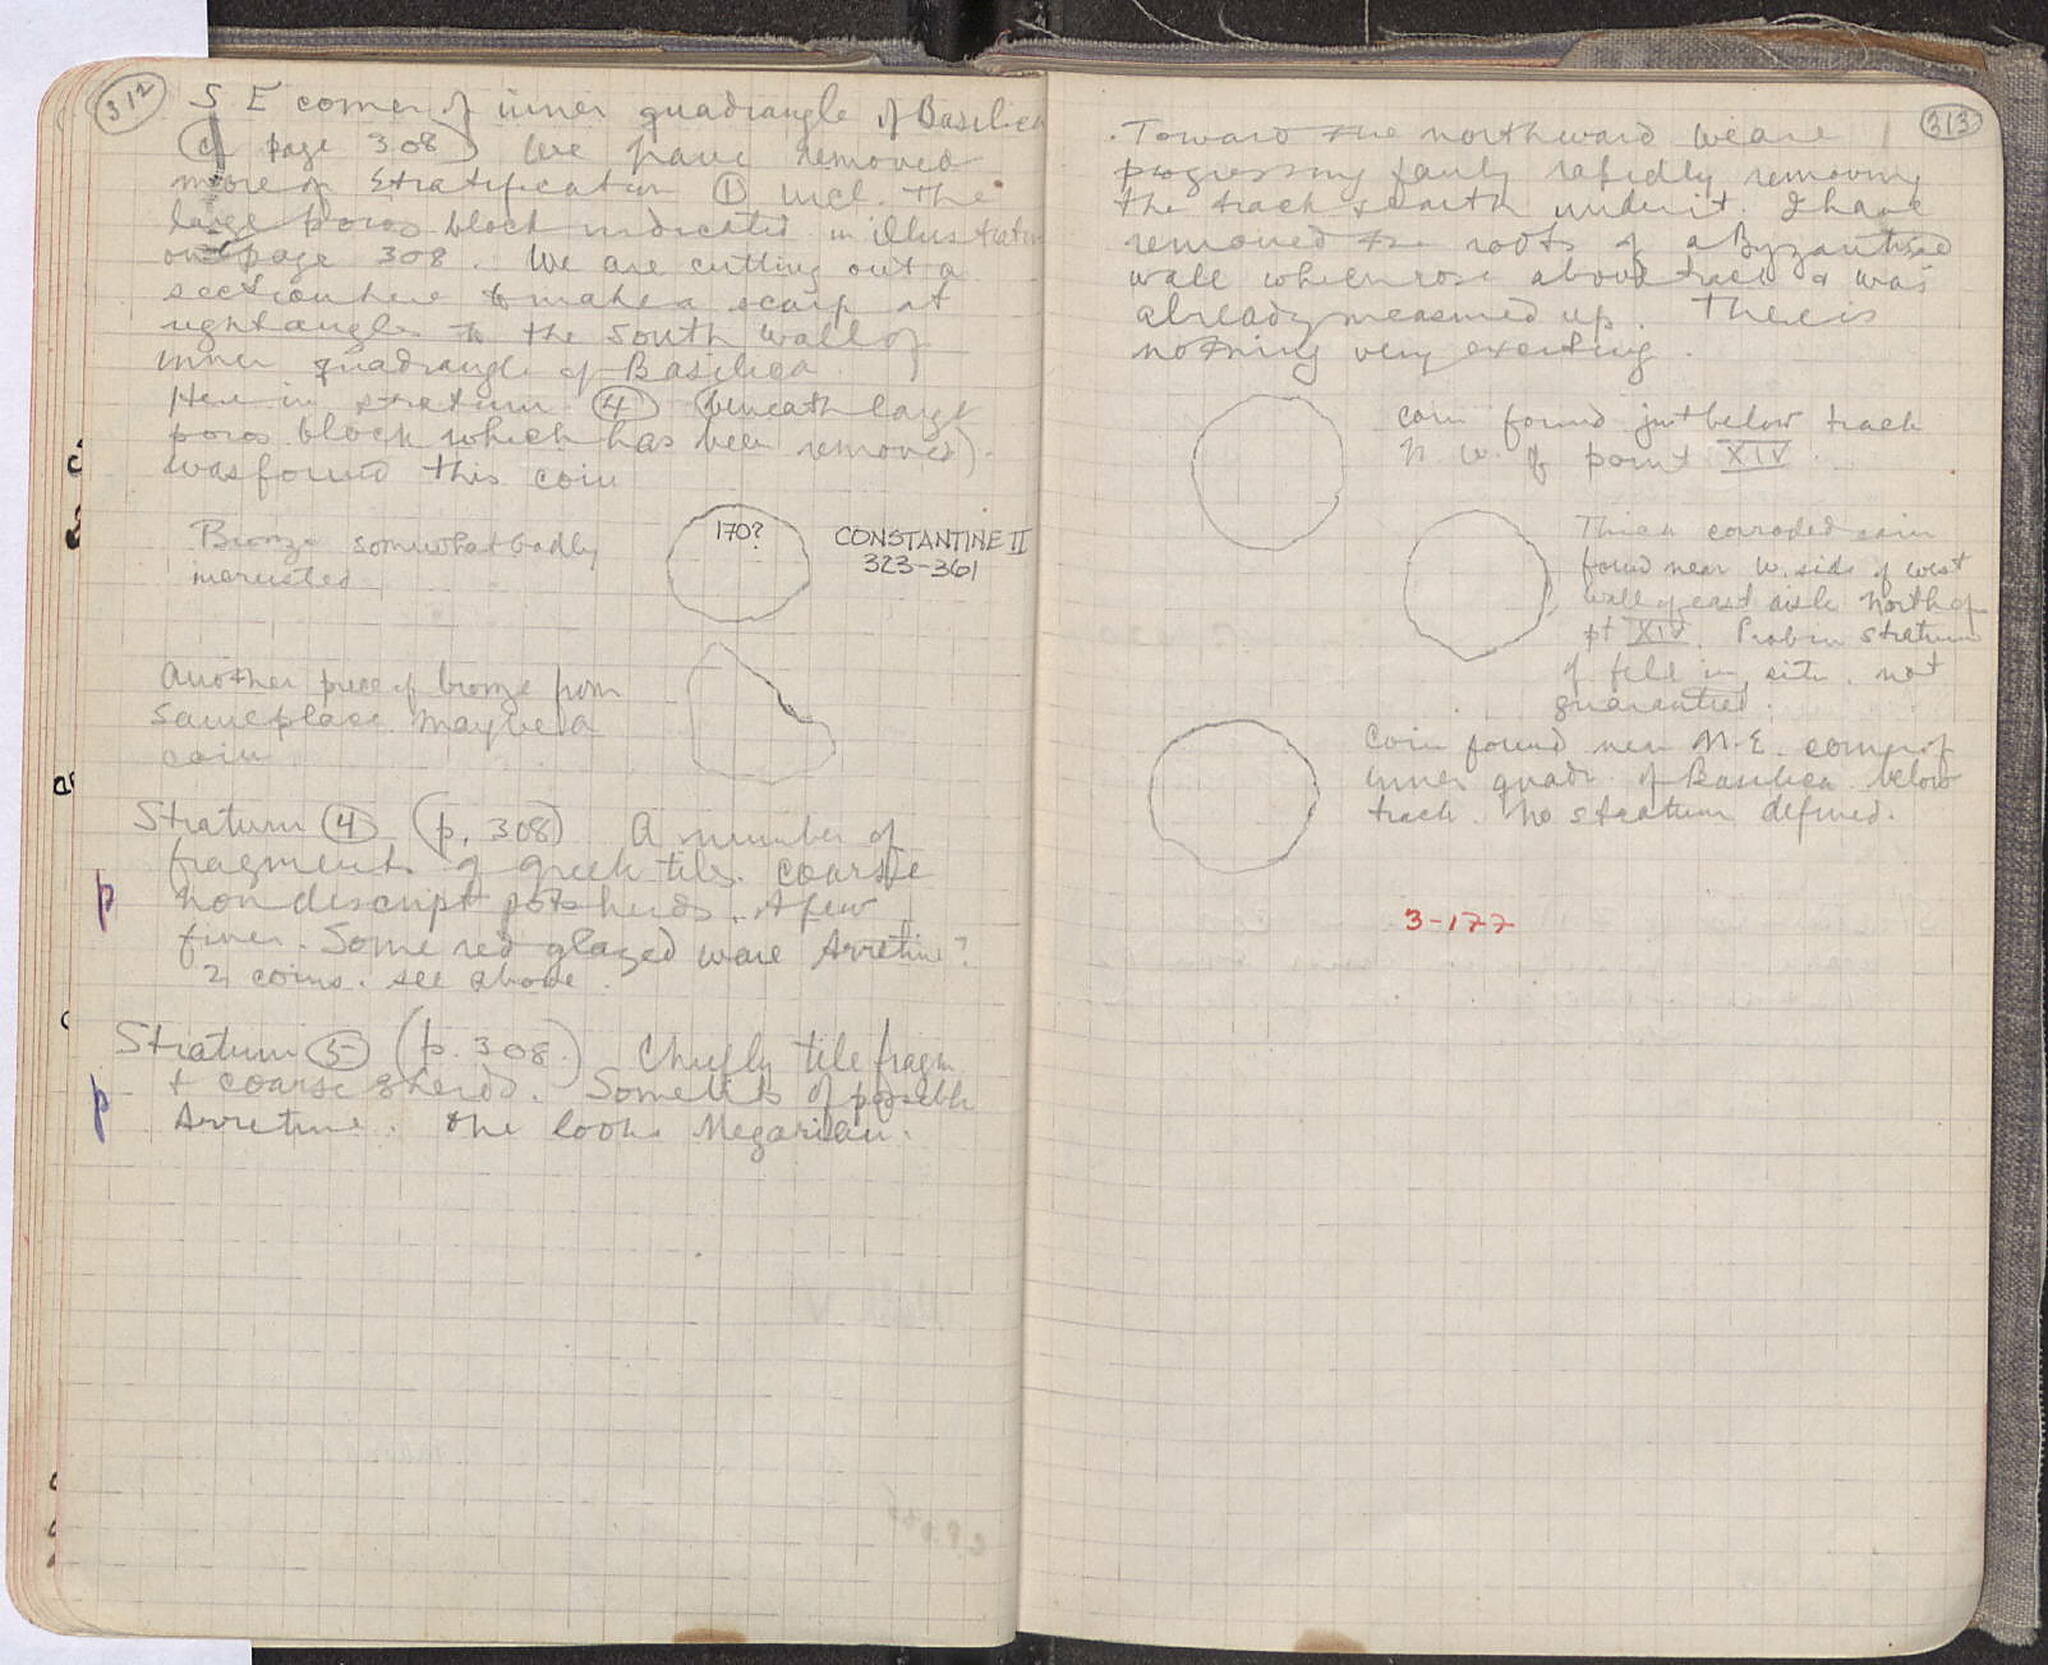 312
S E corner of inner quadrangle of Basilica
(cf page 308) We have removed
more of Stratification ① incl. the
large poros block indicated in illustration
on page 308. We are cutting out a
section here to make a scarp at
right angles to the South wall of
inner quadrangle of Basilica.
Here in stratum ④ (beneath large
poros block which has been removed)
was found this coin
Bronze somewhat badly
incrusted
170?
CONSTANTINE II
323-361
Another piece of bronze from
same place. May be a
coin
Stratum ④ (p. 308) A number of
fragments of greek tiles. coarse
p
non descript potsherds. A few
finer. Some red glazed ware Arretine?
2 coins. see above.
Stratum ⑤ (p. 308.) Chiefly tile fragm
p
+ coarse sherds. Some bits of possible
Arretine. One looks Megarian.
313
Toward the northward we are
progressing fairly rapidly removing
the track & earth under it. I have
removed the roots of a Byzantine
wall which rose above track & was
already measured up. There is
nothing very exciting.
coin found just below track
N W. of point XIV.
Thick corroded coin
found near W. side of west
wall of east aisle North of
pt XIV. Prob in stratum
of fill in situ. not
guaranteed.
Coin found near N.E. corner of
inner quadr. of Basilica below
track. No stratum defined.
3-177